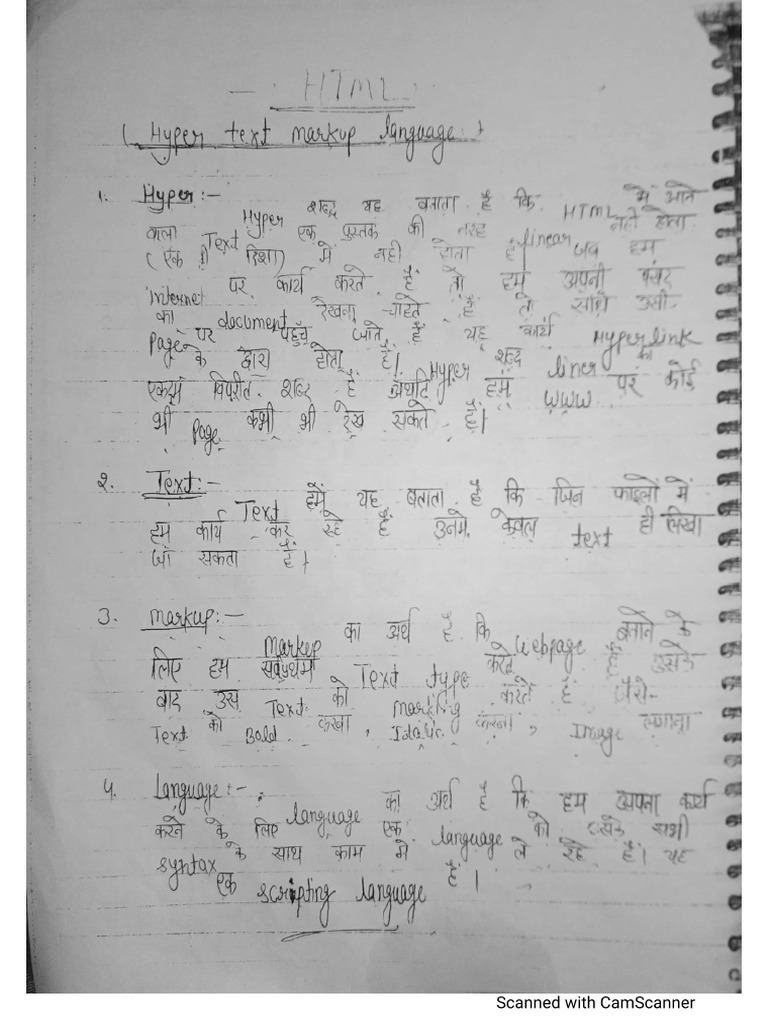 HTML
( Hyper text markup language )
1. Hyper :-
Hyper शब्द यह बताता है कि HTML में आने
वाला Text एक पुस्तक की तरह linear नही होता
( एक ही दिशा ) में नही होता है जब हम
internet पर कार्य करते हैं तो हम अपनी पसंद
का document देखना चाहते हैं तो सीधे उसी
Page पर पहुँच जाते हैं यह कार्य Hyperlink
के द्वारा होता है। Hyper शब्द liner का
एकदम विपरीत शब्द है अर्थात हम WWW पर कोई
भी Page कभी भी देख सकते है।
2. Text :-
Text हमें यह बताता है कि जिन फाइलों में
हम कार्य कर रहे हैं उनमे केवल text ही लिखा
जा सकता है।
3. Markup :-
Markup का अर्थ है कि Webpage बनाने के
लिए हम सर्वप्रथम Text type करते हैं उसके
बाद उस Text को marking करते हैं जैसे-
Text को Bold करना, Idatic करना, Image लगाना
4. Language :-
language का अर्थ है कि हम अपना कार्य
करने के लिए एक language को उसके सभी
syntax के साथ काम मे ले रहे है। यह
एक scripting language है।
Scanned with CamScanner